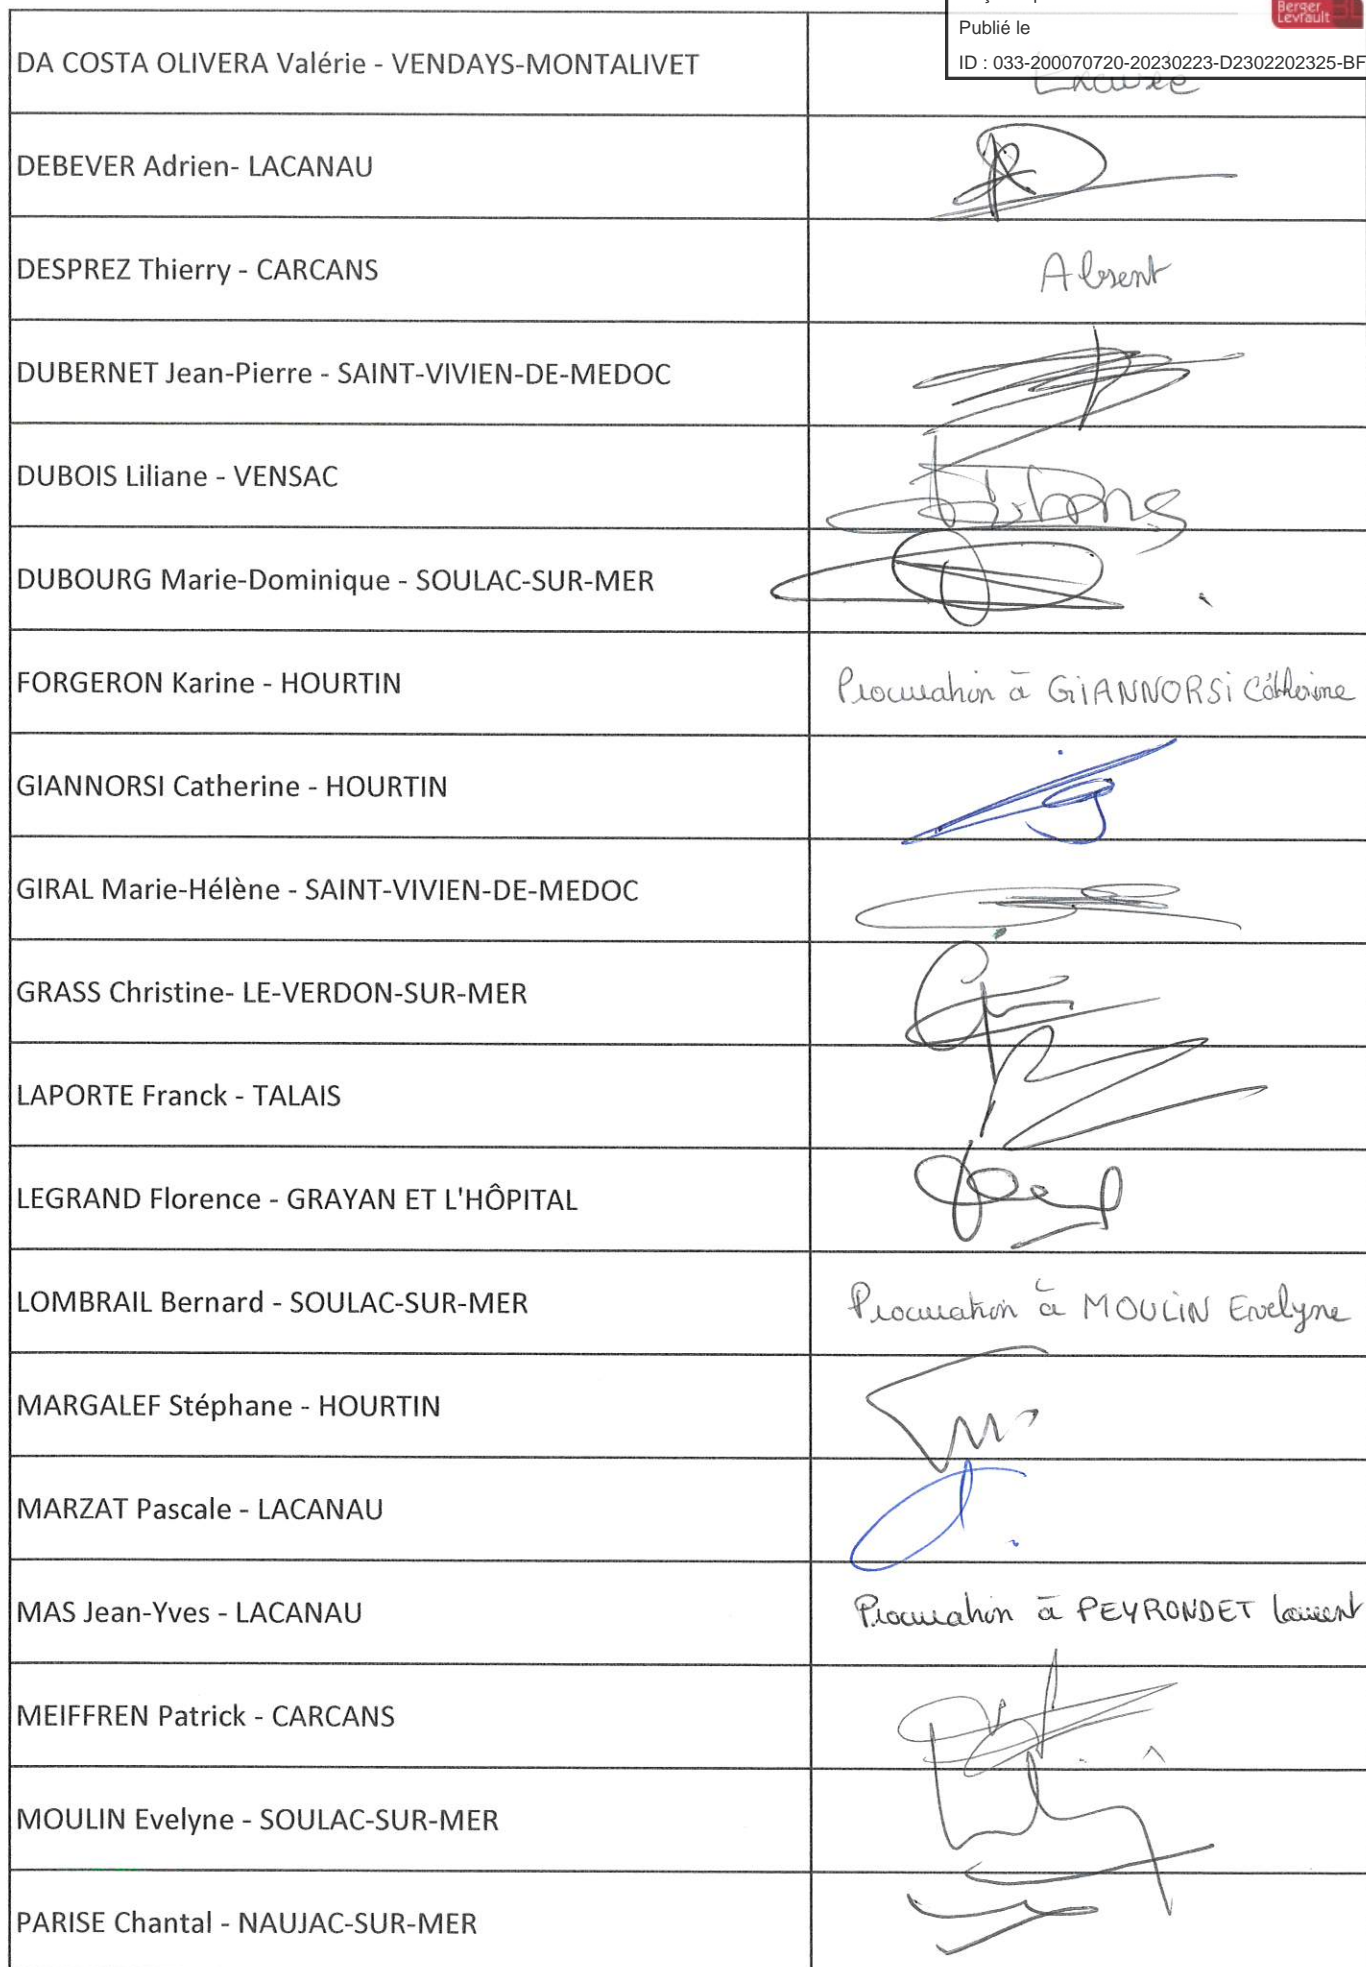 Berger
Levrault
Publié le
ID : 033-200070720-20230223-D2302202325-BF
DA COSTA OLIVERA Valérie - VENDAYS-MONTALIVET
Excusée
DEBEVER Adrien- LACANAU
DESPREZ Thierry - CARCANS
Absent
DUBERNET Jean-Pierre - SAINT-VIVIEN-DE-MEDOC
DUBOIS Liliane - VENSAC
DUBOURG Marie-Dominique - SOULAC-SUR-MER
FORGERON Karine - HOURTIN
Procuration à GIANNORSI Catherine
GIANNORSI Catherine - HOURTIN
GIRAL Marie-Hélène - SAINT-VIVIEN-DE-MEDOC
GRASS Christine- LE-VERDON-SUR-MER
LAPORTE Franck - TALAIS
LEGRAND Florence - GRAYAN ET L'HÔPITAL
LOMBRAIL Bernard - SOULAC-SUR-MER
Procuration à MOULIN Evelyne
MARGALEF Stéphane - HOURTIN
MARZAT Pascale - LACANAU
MAS Jean-Yves - LACANAU
Procuration à PEYRONDET Laurent
MEIFFREN Patrick - CARCANS
MOULIN Evelyne - SOULAC-SUR-MER
PARISE Chantal - NAUJAC-SUR-MER